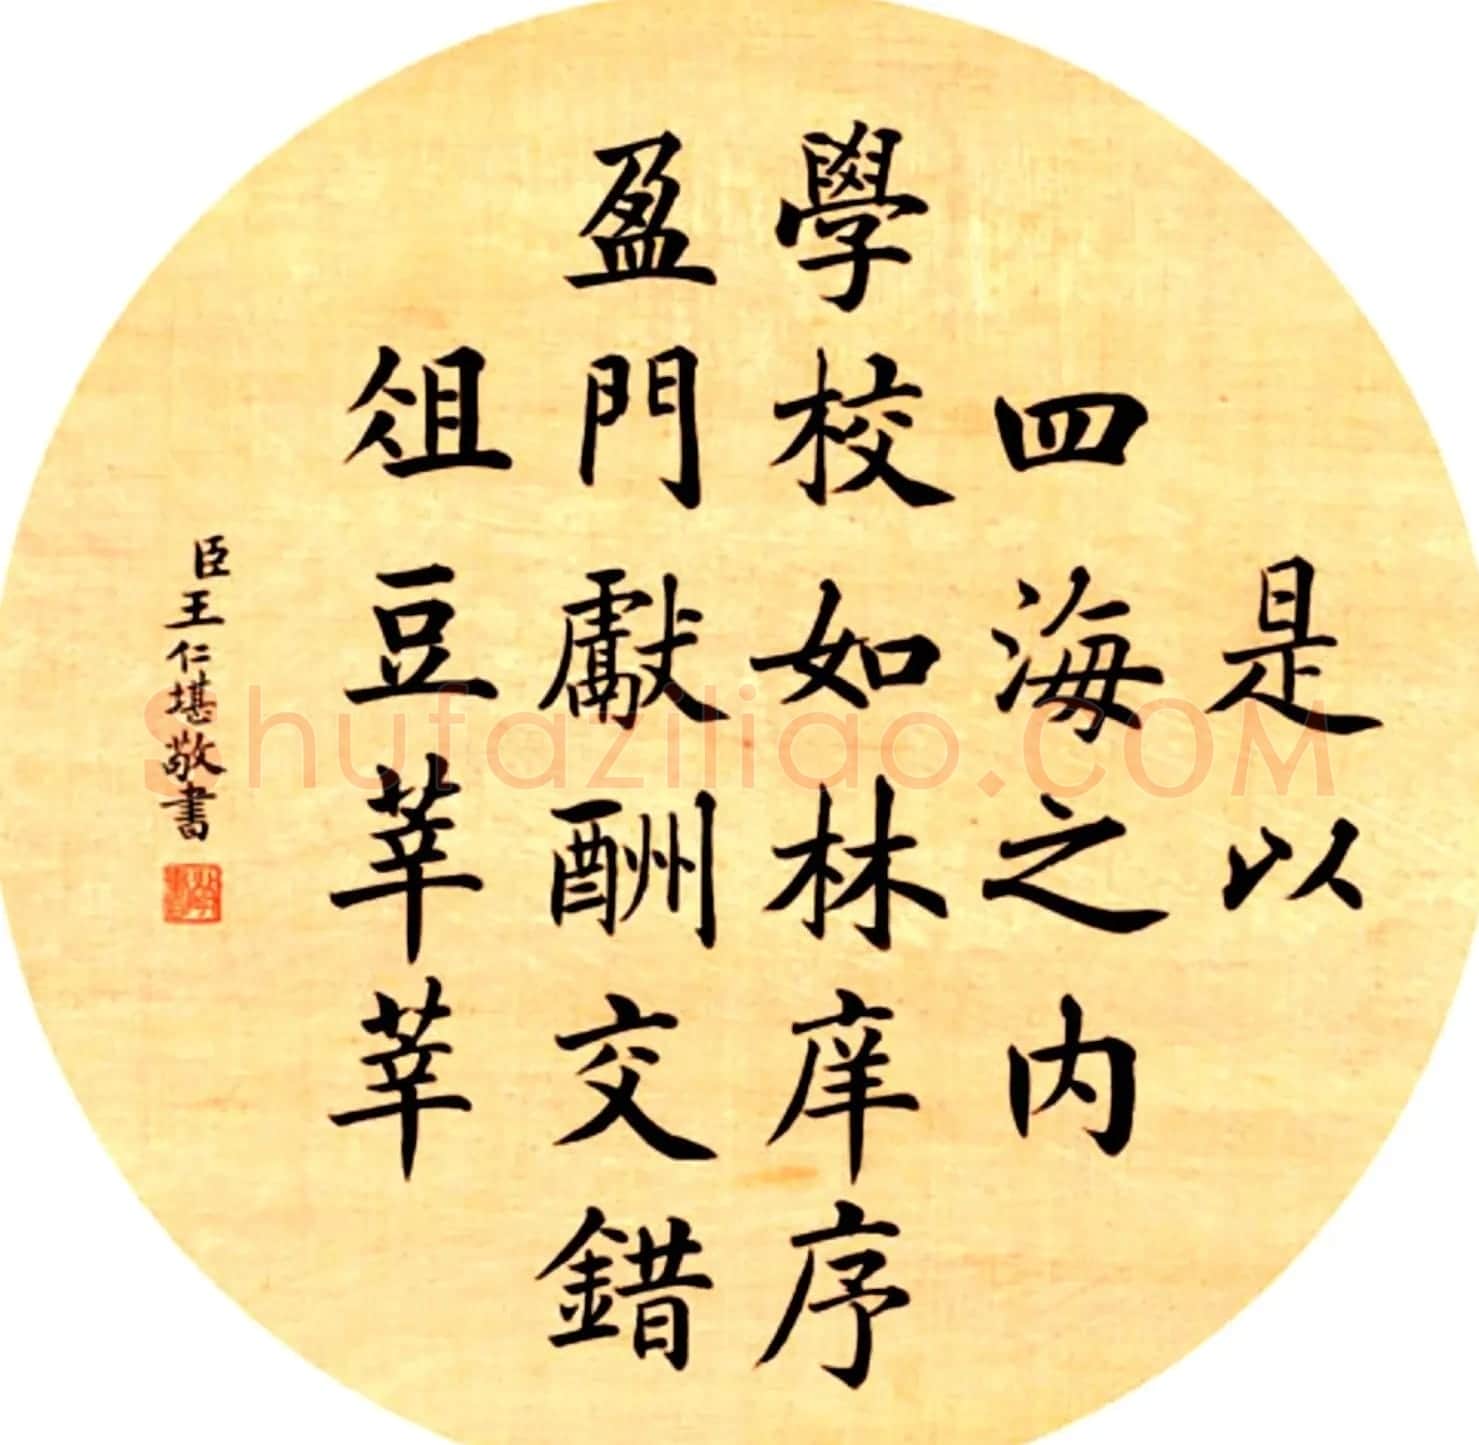 是以
四海之內
學校如林庠序
盈門獻酬交錯
俎豆莘莘
臣王仁堪敬書
Shufaziliao.COM